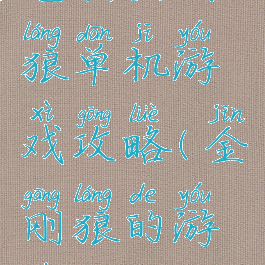 láng dān jī yóu
狼单机游
xì gōng lüè jīn
戏攻略(金
gāng láng de yóu
刚狼的游